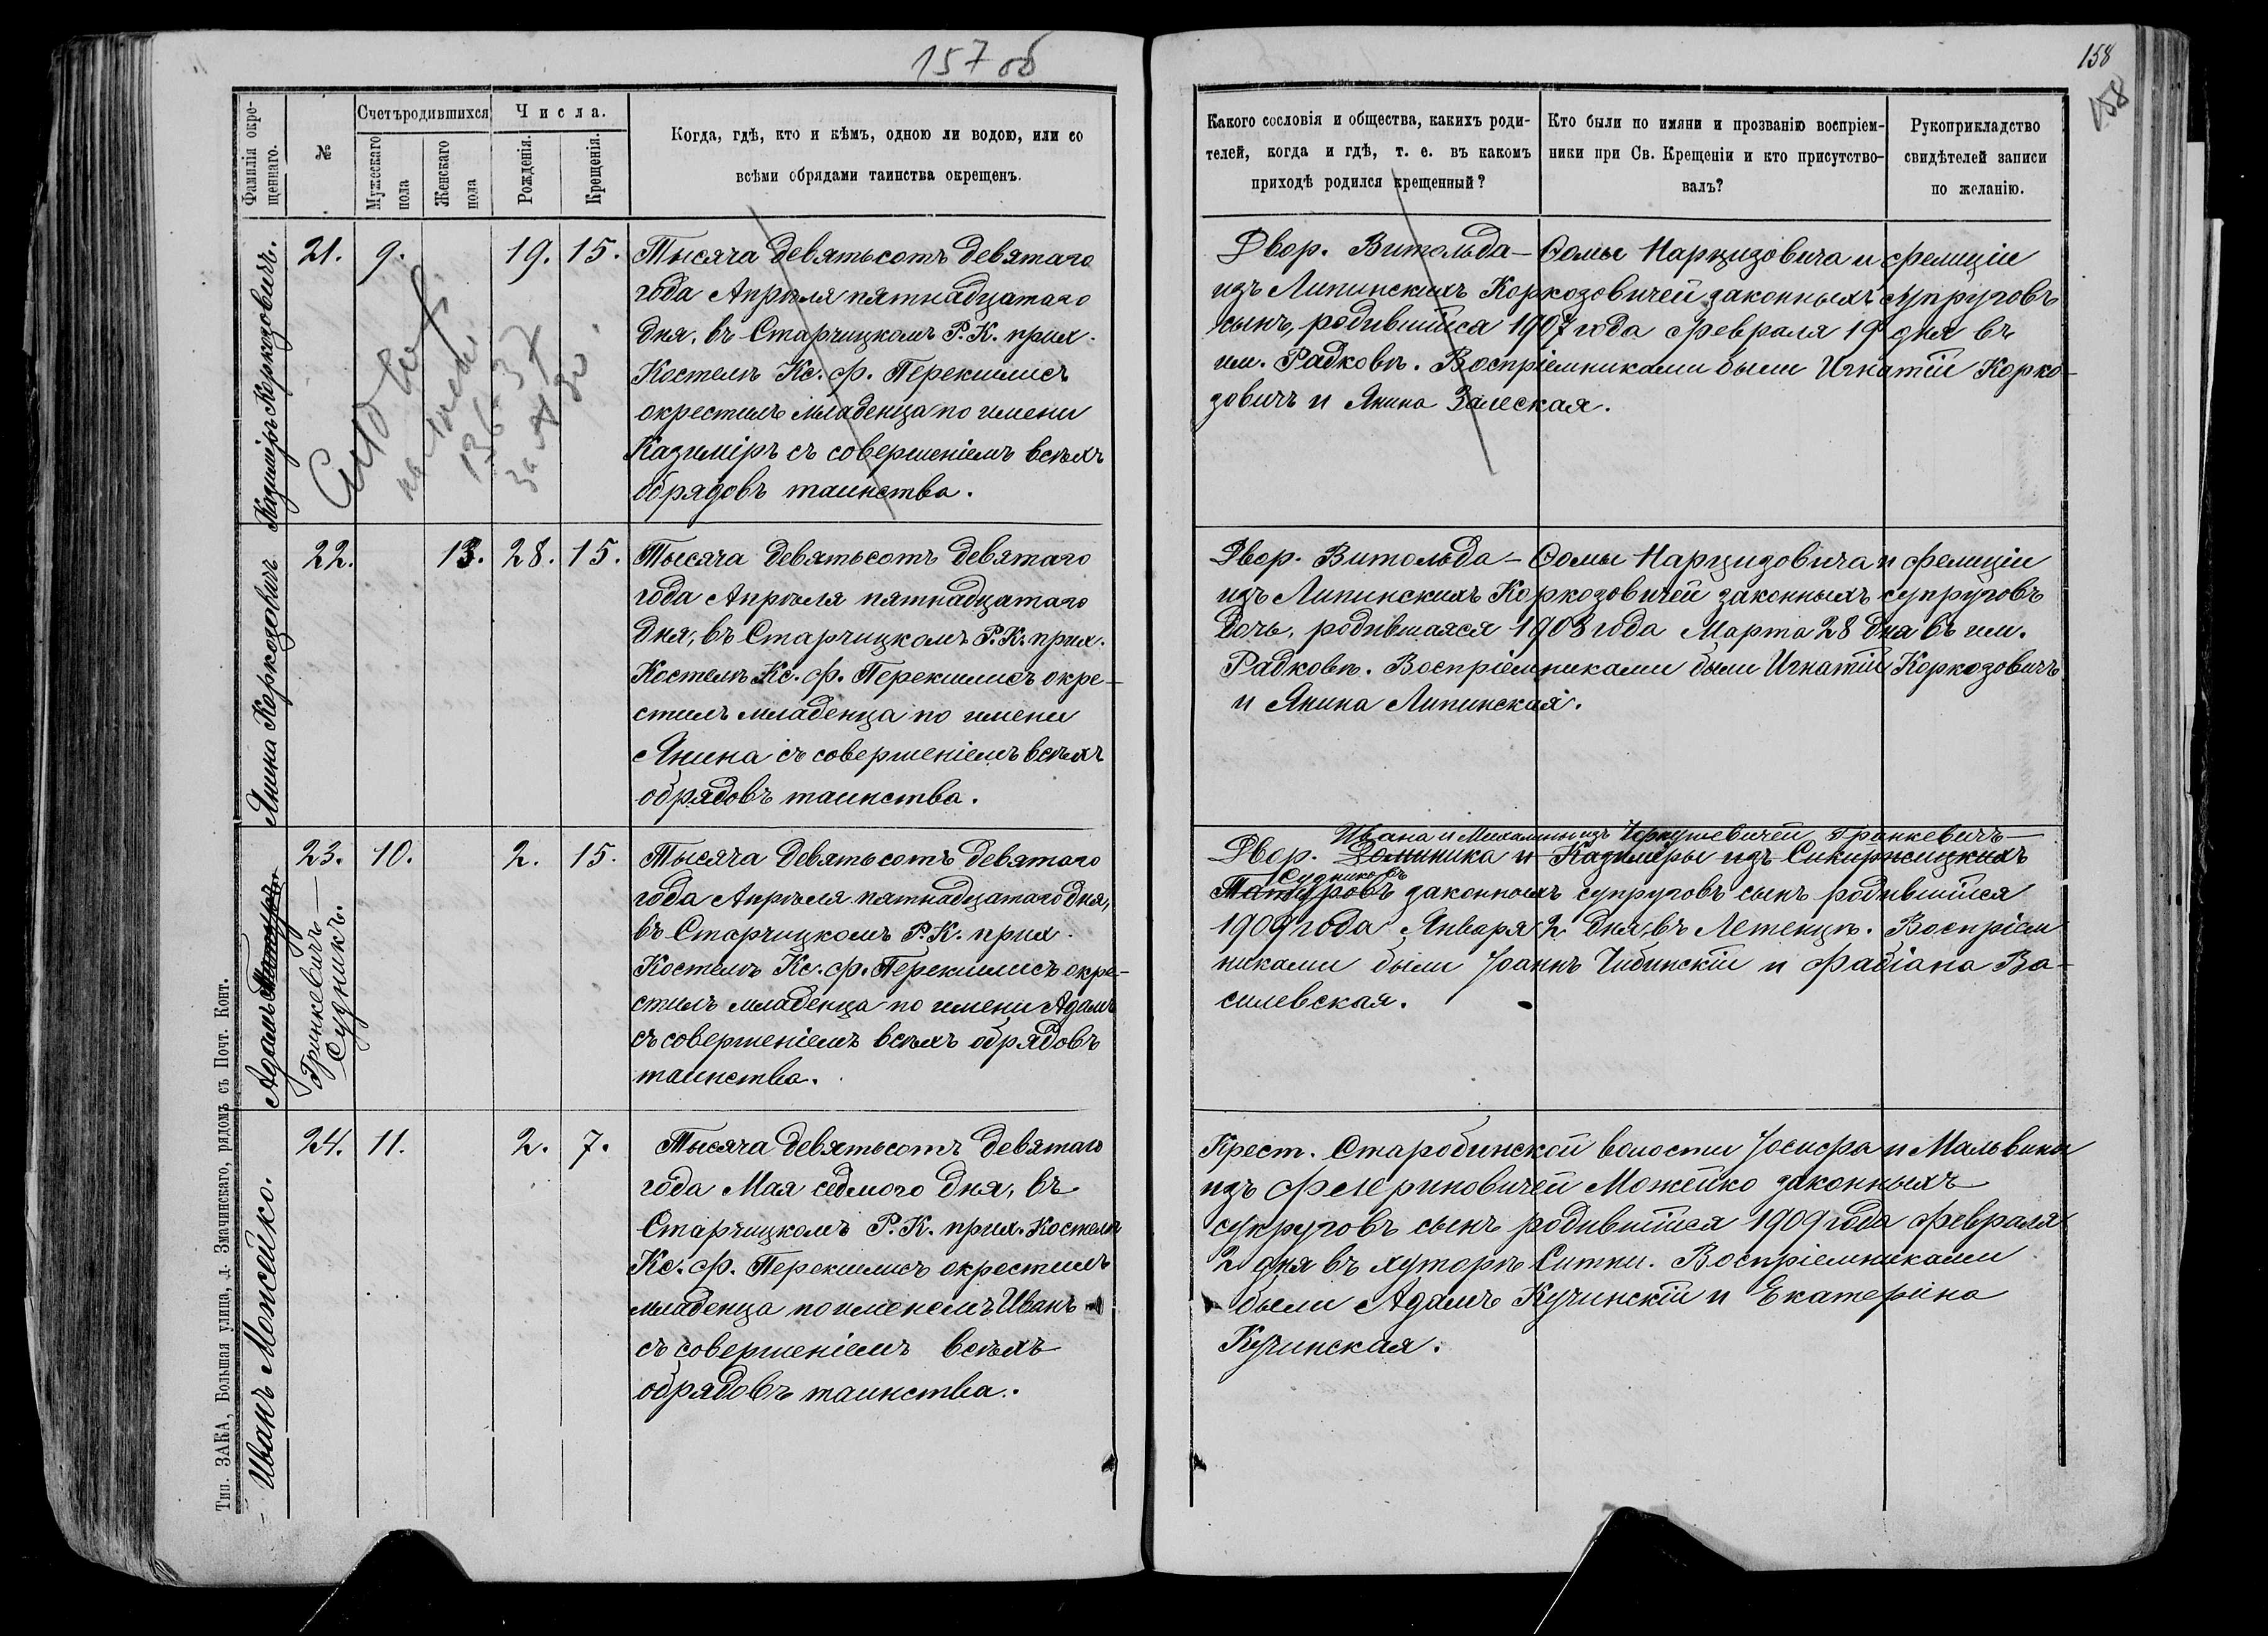 157 об
Фамилія окре-
щеннаго.
№
Счетъ родившихся
Мужескаго
пола
Женскаго
пола
Числа.
Рожденія.
Крещенія.
Когда, гдѣ, кто и кѣмъ, одною ли водою, или со
всѣми обрядами таинства окрещенъ.
Казиміръ Коркозовичъ.
21. 9. 19. 15.
Тысяча девятьсотъ девятаго
года Апрѣля пятнадцатаго
дня, въ Старчицкомъ Р.К. прих.
Костелѣ Кс. Ф. Перекшлисъ
окрестилъ младенца по имени
Казиміръ съ совершеніемъ всѣхъ
обрядовъ таинства.
136-37
Янина Коркозовичъ
22. 13. 28. 15.
Тысяча девятьсотъ девятаго
года Апрѣля пятнадцатаго
дня, въ Старчицкомъ Р.К. прих.
Костелѣ Кс. Ф. Перекшлисъ окре-
стилъ младенца по имени
Янина съ совершеніемъ всѣхъ
обрядовъ таинства.
Адамъ
Гринкевичъ-
Судникъ.
23. 10. 2. 15.
Тысяча девятьсотъ девятаго
года Апрѣля пятнадцатаго дня,
въ Старчицкомъ Р.К. прих.
Костелѣ Кс. Ф. Перекшлисъ окре-
стилъ младенца по имени Адамъ
съ совершеніемъ всѣхъ обрядовъ
таинства.
Иванъ Можейко.
24. 11. 2. 7.
Тысяча девятьсотъ девятаго
года Мая седмого дня, въ
Старчицкомъ Р.К. прих. Костелѣ
Кс. Ф. Перекшлисъ окрестилъ
младенца по именемъ Иванъ
съ совершеніемъ всѣхъ
обрядовъ таинства.
Тип. ЗАКА, Большая улица, д. Значинскаго, рядомъ съ Почт. Конт.
158
158
Какого сословія и общества, какихъ роди-
телей, когда и гдѣ, т. е. въ какомъ
приходѣ родился крещенный?
Кто были по имяни и прозванію воспріем-
ники при Св. Крещеніи и кто присутство-
валъ?
Рукоприкладство
свидѣтелей записи
по желанію.
Двор. Витольда-Ѳомы Нарцизовича и Фелиціи
изъ Липинскихъ Коркозовичей законныхъ супруговъ
сынъ, родившійся 1907 года Февраля 19 дня въ
им. Радковѣ. Воспріемниками были Игнатій Корко-
зовичъ и Янина Залеская.
Двор. Витольда-Ѳомы Нарцизовича и Фелиціи
изъ Липинскихъ Коркозовичей законныхъ супруговъ
дочь, родившаяся 1908 года Марта 28 дня въ им.
Радковѣ. Воспріемниками были Игнатій Коркозовичъ
и Янина Липинская.
Ивана и Михалины изъ Гринкевичъ-
Двор. Доминика и Казимеры изъ
Судниковъ
Мацуровъ законныхъ супруговъ сынъ родившійся
1909 года Января 2 дня, въ Летенцѣ. Воспріем
никами были Іоаннъ Чибинскій и Фабіана Ва-
силевская.
Крест. Старобинской волости Іосифа и Мальвины
изъ Флериновичей Можейко законныхъ
супруговъ сынъ родившійся 1909 года Февраля
2 дня въ хуторѣ Ситни. Воспріемниками
были Адамъ Кучинскій и Екатерина
Кучинская.